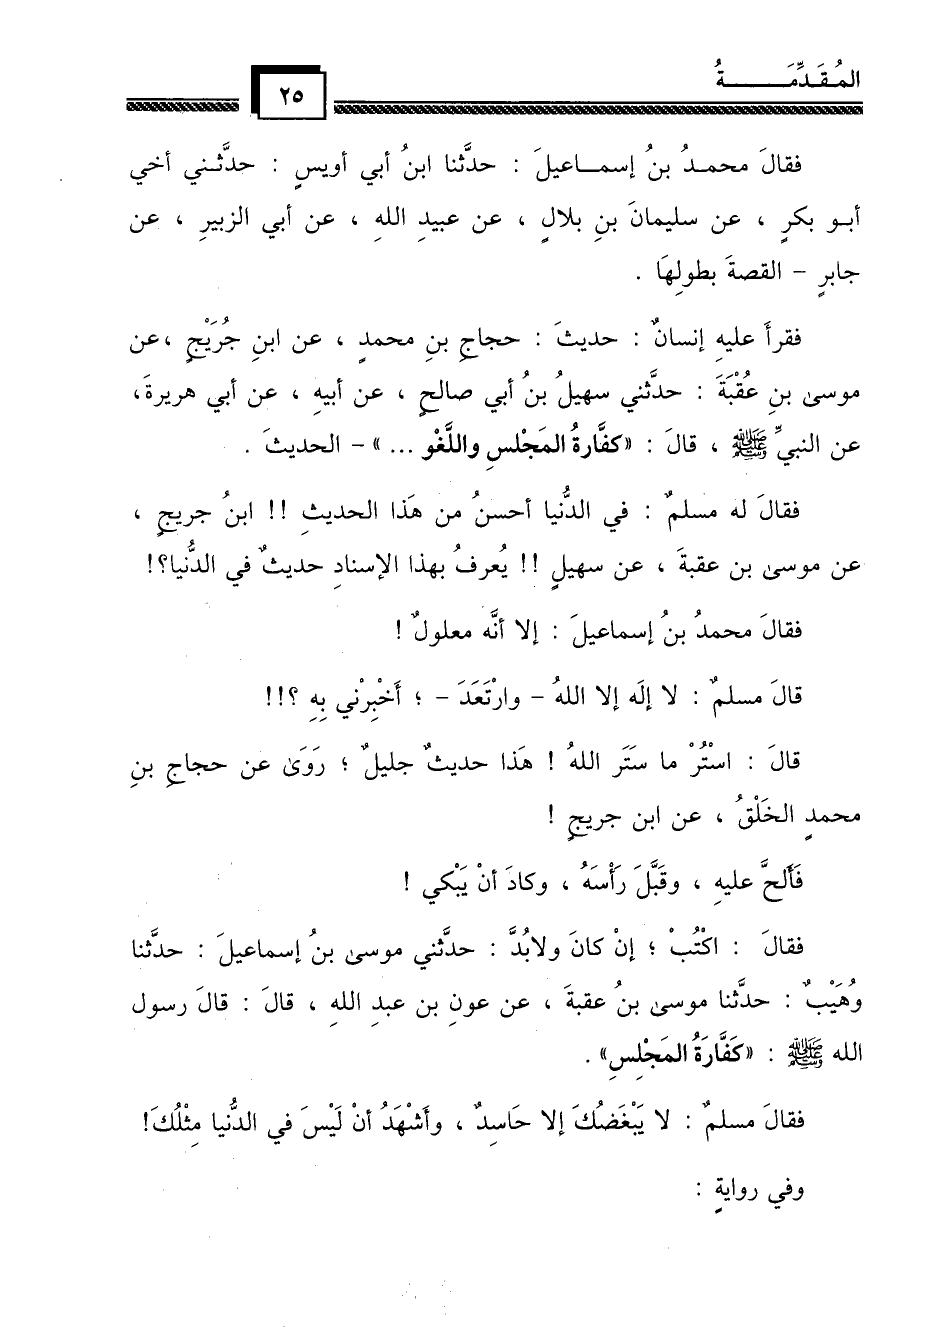 المُقَدِّمَـــــــةُ
٢٥
فقالَ محمـدُ بنُ إسمـاعيلَ : حدَّثنا ابنُ أبي أويسٍ : حدَّثـني أخي
أبـو بكرٍ ، عن سليمانَ بنِ بلالٍ ، عن عبيدِ اللهِ ، عن أبي الزبيرِ ، عن
جابرٍ – القصةَ بطولِهَا .
فقرأَ عليهِ إنسانٌ : حديثَ : حجاجِ بنِ محمدٍ ، عن ابنِ جُرَيْجٍ ،عن
موسىٰ بنِ عُقْبَةَ : حدَّثني سهيلُ بنُ أبي صالحٍ ، عن أبيهِ ، عن أبي هريرةَ،
عن النبيِّ ﷺ ، قالَ : «كفَّارةُ المَجْلسِ واللَّغْو ... » – الحديثَ .
فقالَ له مسلمٌ : في الدُّنيا أحسنُ من هَذا الحديثِ !! ابنُ جريجٍ ،
عن موسىٰ بن عقبةَ ، عن سهيلٍ !! يُعرفُ بهذا الإسنادِ حديثٌ في الدُّنيا؟!
فقالَ محمدُ بنُ إسماعيلَ : إلا أنَّه معلولٌ !
قالَ مسلمٌ : لا إلَه إلا اللهُ – وارْتَعَدَ – ؛ أَخْبِرْني بِهِ ؟!!
قالَ : اسْتُرْ ما سَتَر اللهُ ! هَذا حديثٌ جليلٌ ؛ رَوَىٰ عن حجاجِ بنِ
محمدٍ الخَلْقُ ، عن ابن جريجٍ !
فَأَلحَّ عليهِ ، وقَبَّلَ رَأْسَهُ ، وكادَ أنْ يَبْكي !
فقالَ : اكْتُبْ ؛ إنْ كانَ ولابُدَّ : حدَّثني موسىٰ بنُ إسماعيلَ : حدَّثنا
وُهَيْبٌ : حدَّثنا موسىٰ بنُ عقبةَ ، عن عونِ بن عبدِ اللهِ ، قالَ : قالَ رسول
الله ﷺ : «كَفَّارَةُ المَجْلِسِ» .
فقالَ مسلمٌ : لا يَبْغَضُكَ إلا حَاسِدٌ ، وأَشْهَدُ أنْ لَيْسَ في الدُّنيا مِثْلُكَ!
وفي روايةٍ :